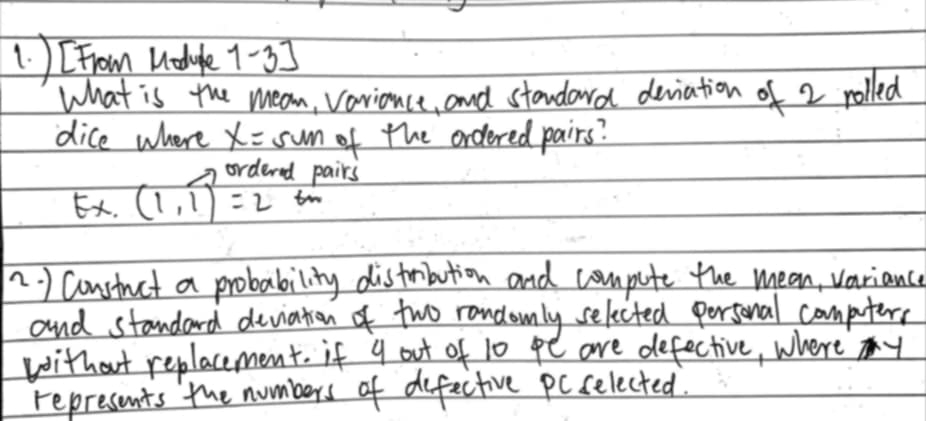 1.) [From Module 1-3]
What is the mean, variance, and standard deviation of 2 rolled
dice where X = sum of the ordered pairs?
ordered pairs
Ex. (1,1) = 2
2.) Construct a probability distribution and compute the mean, variance
and standard deviation of two randomly selected personal computers
without replacement. if 4 out of 10 PC are defective, where Y
represents the numbers of defective PC selected.